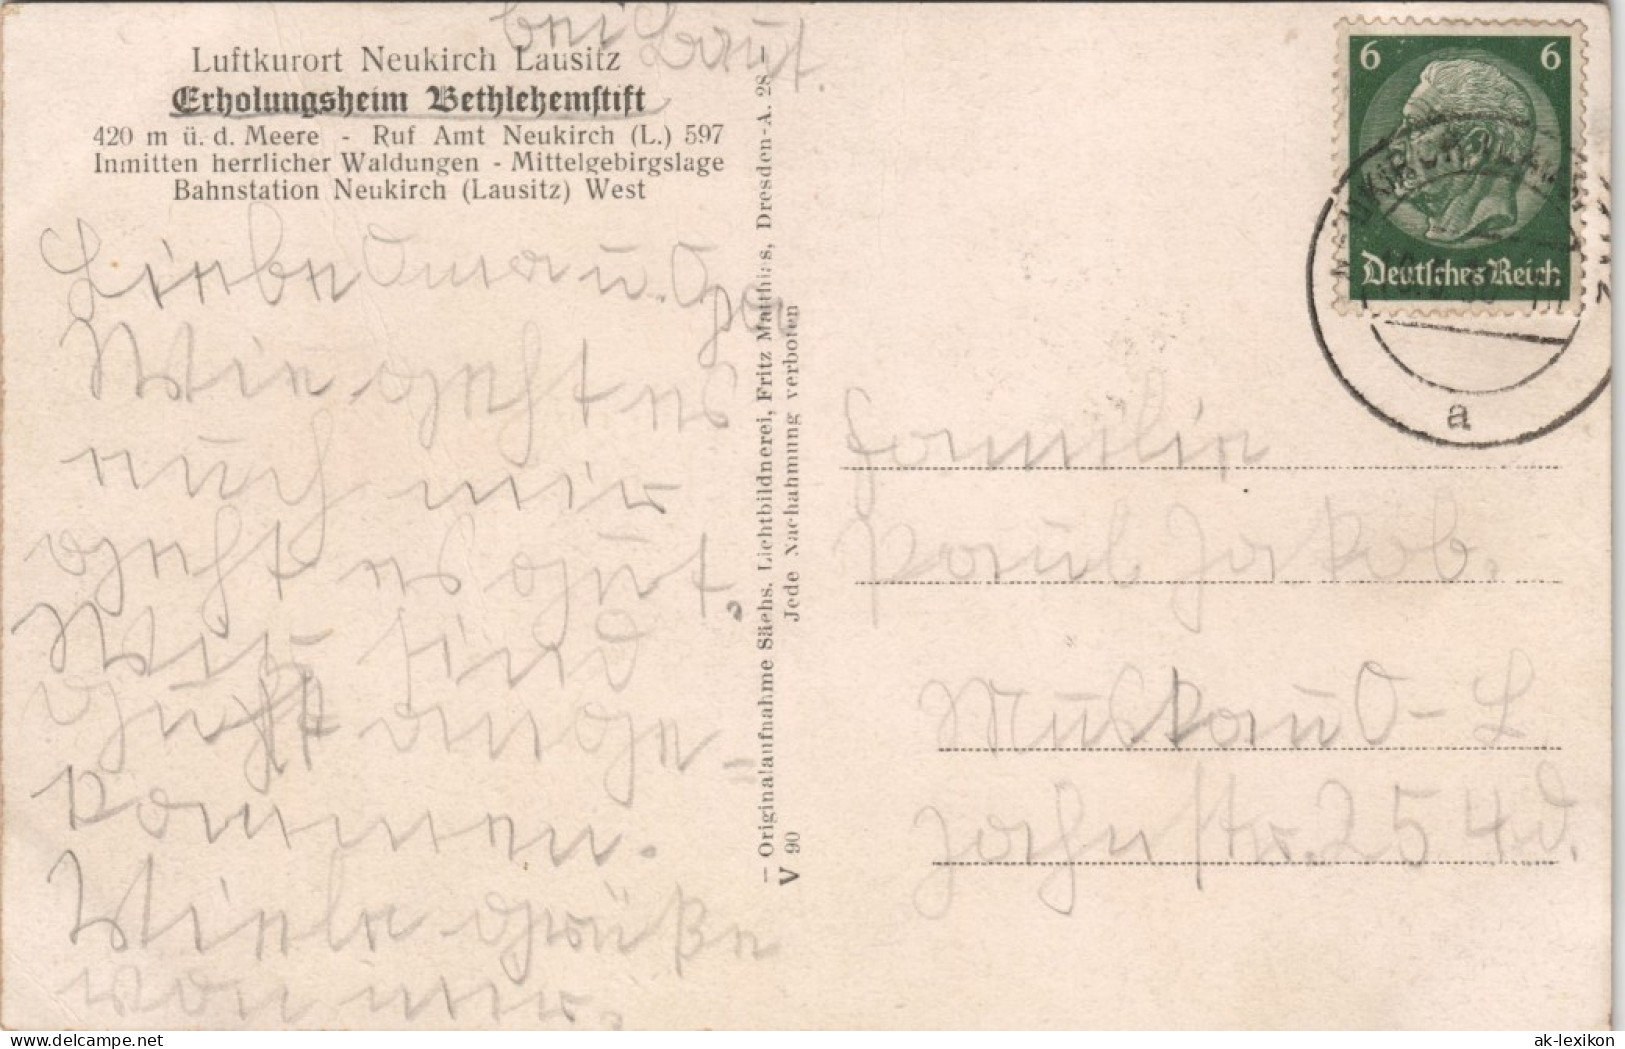 bei Baut.
Luftkurort Neukirch Lausitz
Erholungsheim Bethlehemstift
420 m ü. d. Meere - Ruf Amt Neukirch (L.) 597
Inmitten herrlicher Waldungen - Mittelgebirgslage
Bahnstation Neukirch (Lausitz) West
Liebe Oma u. Opa
Wie geht es
euch mir
geht es gut,
Wir sind
gut ange=
kommen.
Viele Grüße
von mir.
— Originalaufnahme Sächs. Lichtbildnerei, Fritz Matthias, Dresden-A. 28 —
V 90 Jede Nachahmung verboten
6 6
Deutsches Reich
a
Familie
Paul Jakob.
Muskau O-L
str. 25